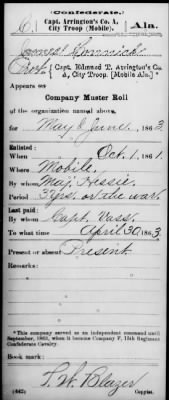 (Confederate.)
Capt. Arrington's Co. A,
City Troop (Mobile). Ala.
Pvt., Capt. Edmund T. Arrington's Co.
A, City Troop. [Mobile Ala.]*
Appears on
Company Muster Roll
of the organization named above,
for May & June, 1863
Enlisted:
When Oct. 1, 1861
Where Mobile,
By whom Maj. Hessie
Period 3 yrs. or the war
Last paid:
By whom Capt. Vass
To what time April 30, 1863
Present or absent Present
Remarks:
*This company served as an independent command until
September, 1863, when it became Company F, 15th Regiment
Confederate Cavalry.
Book mark:
(642) Copyist.